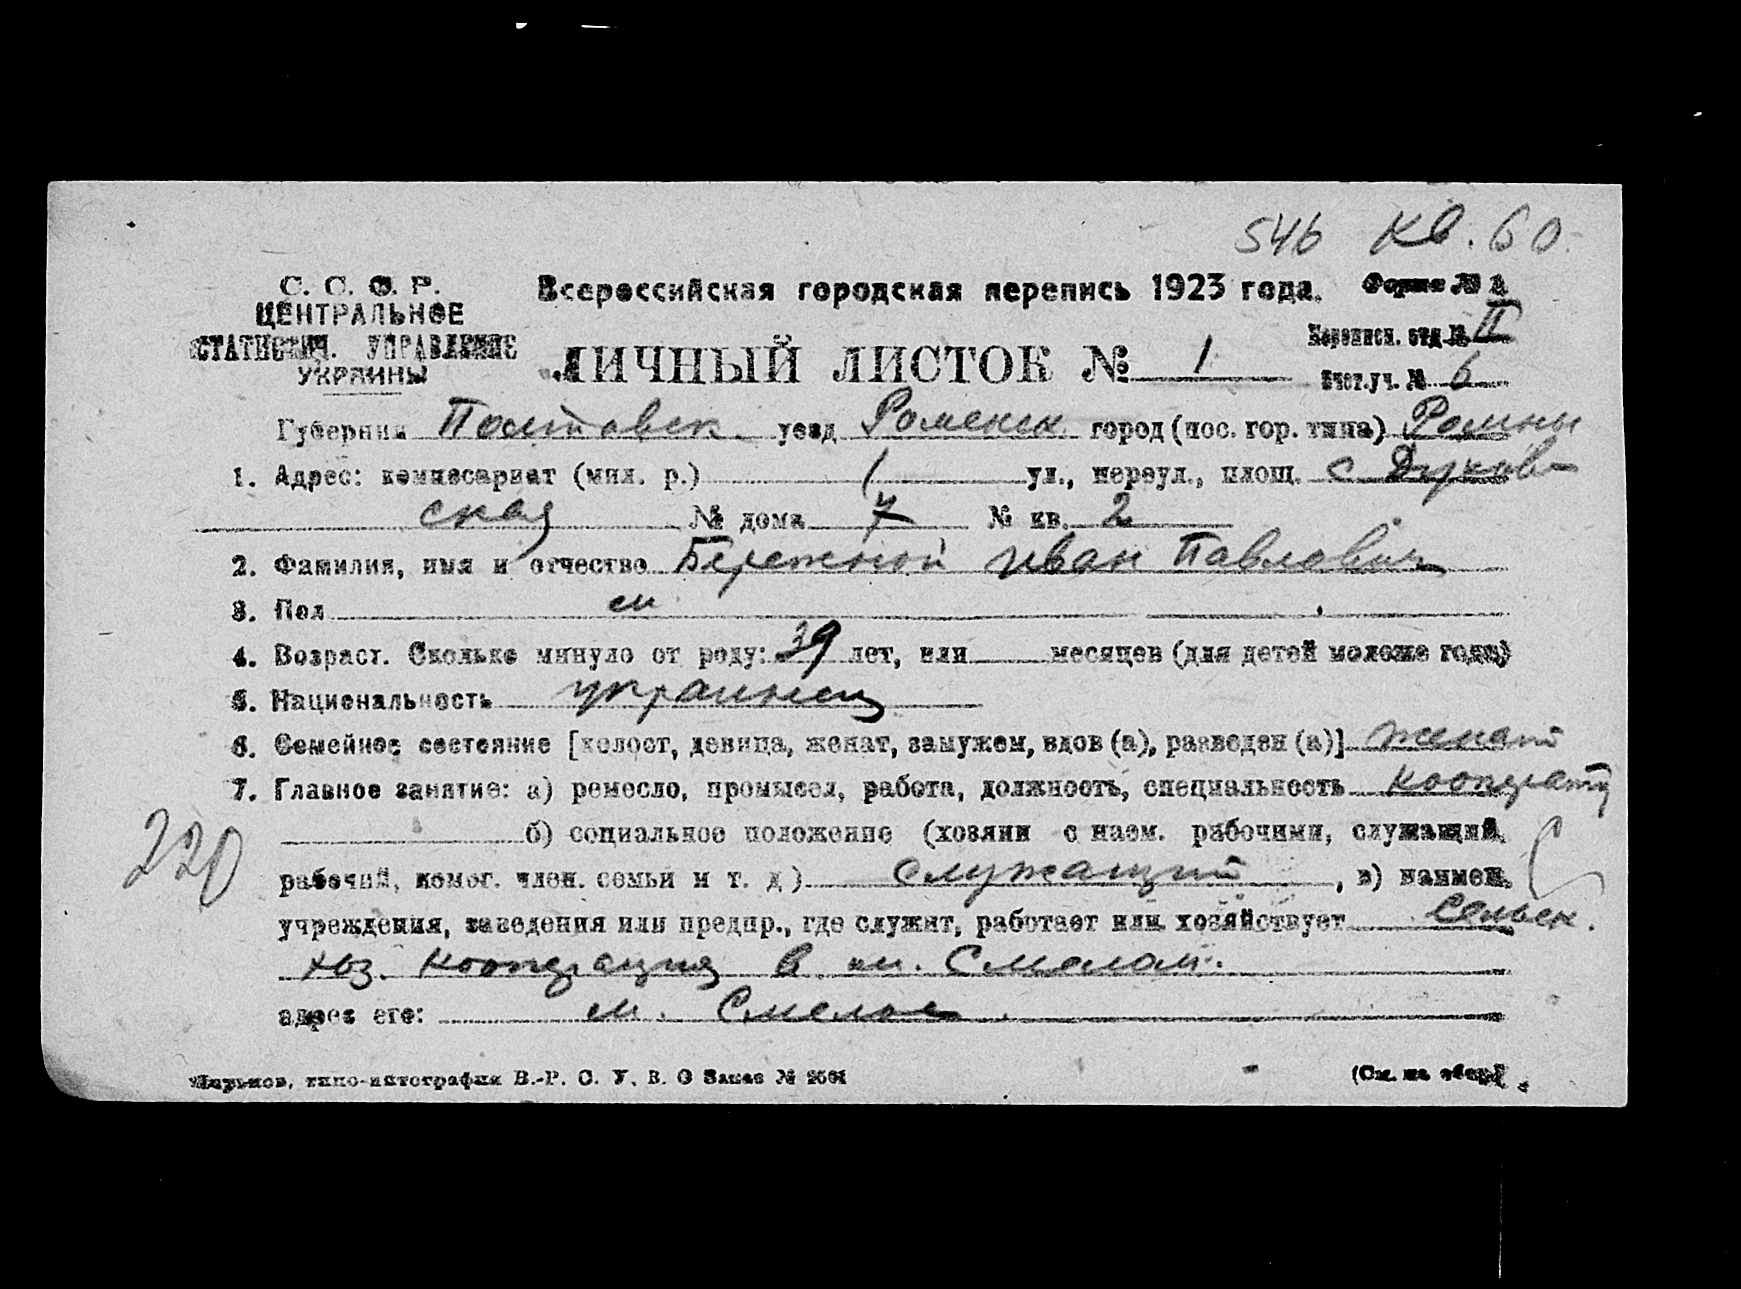 546 кв. 60.
С. С. С. Р.
ЦЕНТРАЛЬНОЕ
СТАТИСТИЧ. УПРАВЛЕНИЕ
УКРАИНЫ
Всероссийская городская перепись 1923 года.
Форма № 1
ЛИЧНЫЙ ЛИСТОК № 1
Переписн. отд. № II
Счет. уч. № 6
Губерния Полтавск. уезд Роменск. город (пос. гор. типа) Ромны
1. Адрес: комиссариат (мил. р.) 1 ул., переул., площ.
ская № дома 7 № кв. 2
2. Фамилия, имя и отчество Бережной Иван Павлович
3. Пол м.
4. Возраст. Сколько минуло от роду: 39 лет, или месяцев (для детей моложе года)
5. Национальность украинец
6. Семейное состояние [холост, девица, женат, замужем, вдов (а), разведен (а)] женат
7. Главное занятие: а) ремесло, промысел, работа, должность, специальность кооперат
б) социальное положение (хозяин с наем. рабочими, служащий,
220
рабочий, помог. член. семьи и т. д.) служащий, в) наимен.
учреждения, заведения или предпр., где служит, работает или хозяйствует Сельск.
хоз. кооперация в м. Смелом.
адрес его: м. Смелое.
Харьков, типо-литография В.-Р. С. У. В. О Заказ №
(См. на обор.)